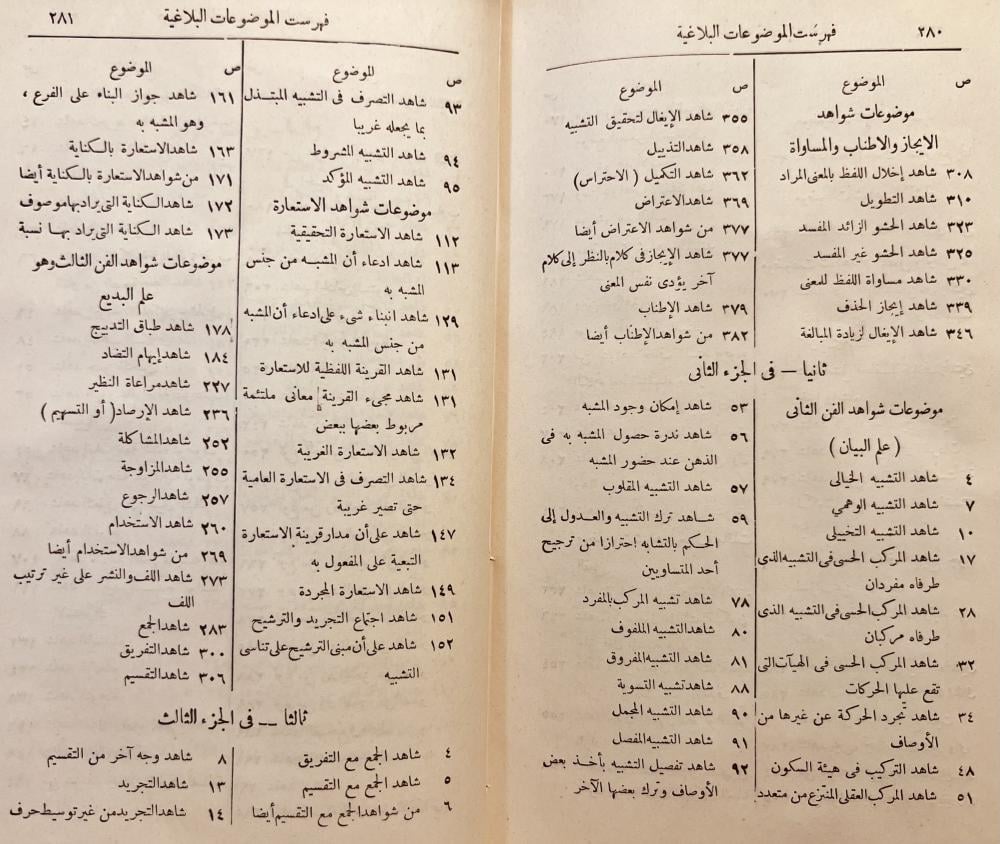 ٢٨٠
فهرست الموضوعات البلاغية
ص الموضوع
موضوعات شواهد
الايجاز والاطناب والمساواة
٣٠٨ شاهد إخلال اللفظ بالمعنى المراد
٣١٠ شاهد التطويل
٣٢٣ شاهد الحشو الزائد المفسد
٣٢٥ شاهد الحشو غير المفسد
٣٣٠ شاهد مساواة اللفظ للمعنى
٣٣٩ شاهد إيجاز الحذف
٣٤٦ شاهد الإيغال لزيادة المبالغة
ص الموضوع
٣٥٥ شاهد الإيغال لتحقيق التشبيه
٣٥٨ شاهد التذييل
٣٦٢ شاهد التكميل (الاحتراس)
٣٦٩ شاهد الاعتراض
٣٧٧ من شواهد الاعتراض أيضا
٣٧٧ شاهد الإيجاز فى كلام بالنظر إلى كلام
آخر يؤدى نفس المعنى
٣٧٩ شاهد الإطناب
٣٨٢ من شواهد الإطناب أيضا
ثانيا — فى الجزء الثانى
موضوعات شواهد الفن الثانى
(علم البيان)
٤ شاهد التشبيه الخيالى
٧ شاهد التشبيه الوهمي
١٠ شاهد التشبيه التخييلى
١٧ شاهد المركب الحسى فى التشبيه الذى
طرفاه مفردان
٢٨ شاهد المركب الحسى فى التشبيه الذى
طرفاه مركبان
٣٢ شاهد المركب الحسى فى الهيآت التى
تقع عليها الحركات
٣٤ شاهد تجرد الحركة عن غيرها من
الأوصاف
٤٨ شاهد التركيب فى هيئة السكون
٥١ شاهد المركب العقلى المنتزع من متعدد
٥٣ شاهد إمكان وجود المشبه
٥٦ شاهد ندرة حصول المشبه به فى
الذهن عند حضور المشبه
٥٧ شاهد التشبيه المقلوب
٥٩ شاهد ترك التشبيه والعدول إلى
الحكم بالتشابه احترازا من ترجيح
أحد المتساويين
٧٨ شاهد تشبيه المركب بالمفرد
٨٠ شاهد التشبيه الملفوف
٨١ شاهد التشبيه المفروق
٨٨ شاهد تشبيه التسوية
٩٠ شاهد التشبيه المجمل
٩١ شاهد التشبيه المفصل
٩٢ شاهد تفصيل التشبيه بأخذ بعض
الأوصاف وترك بعضها الآخر
فهرست الموضوعات البلاغية
٢٨١
ص الموضوع
٩٣ شاهد التصرف فى التشبيه المبتذل
بما يجعله غريبا
٩٤ شاهد التشبيه المشروط
٩٥ شاهد التشبيه المؤكد
موضوعات شواهد الاستعارة
١١٢ شاهد الاستعارة التحقيقية
١١٣ شاهد ادعاء أن المشبه من جنس
المشبه به
١٢٩ شاهد انبناء شىء على ادعاء أن المشبه
من جنس المشبه به
١٣١ شاهد القرينة اللفظية للاستعارة
١٣١ شاهد مجىء القرينة معانى ملتئمة
مربوط بعضها ببعض
١٣٢ شاهد الاستعارة الغريبة
١٣٤ شاهد التصرف فى الاستعارة العامية
حتى تصير غريبة
١٤٧ شاهد على أن مدار قرينة الاستعارة
التبعية على المفعول به
١٤٩ شاهد الاستعارة المجردة
١٥١ شاهد اجتماع التجريد والترشيح
١٥٢ شاهد على أن مبنى الترشيح على تناسى
التشبيه
ص الموضوع
١٦١ شاهد جواز البناء على الفرع ،
وهو المشبه به
١٦٣ شاهد الاستعارة بالكناية
١٧١ من شواهد الاستعارة بالكناية أيضا
١٧٢ شاهد الكناية التى يراد بها موصوف
١٧٣ شاهد الكناية التى يراد بها نسبة
موضوعات شواهد الفن الثالث وهو
علم البديع
١٧٨ شاهد طباق التدبيج
١٨٤ شاهد إيهام التضاد
٢٢٧ شاهد مراعاة النظير
٢٣٦ شاهد الإرصاد (أو التسهيم)
٢٥٢ شاهد المشاكلة
٢٥٥ شاهد المزاوجة
٢٥٧ شاهد الرجوع
٢٦٠ شاهد الاستخدام
٢٦٩ من شواهد الاستخدام أيضا
٢٧٣ شاهد اللف والنشر على غير ترتيب
اللف
٢٨٣ شاهد الجمع
٣٠٠ شاهد التفريق
٣٠٦ شاهد التقسيم
ثالثا — فى الجزء الثالث
٤ شاهد الجمع مع التفريق
٥ شاهد الجمع مع التقسيم
٦ من شواهد الجمع مع التقسيم أيضا
٨ شاهد وجه آخر من التقسيم
١٣ شاهد التجريد
١٤ شاهد التجريد من غير توسيط حرف